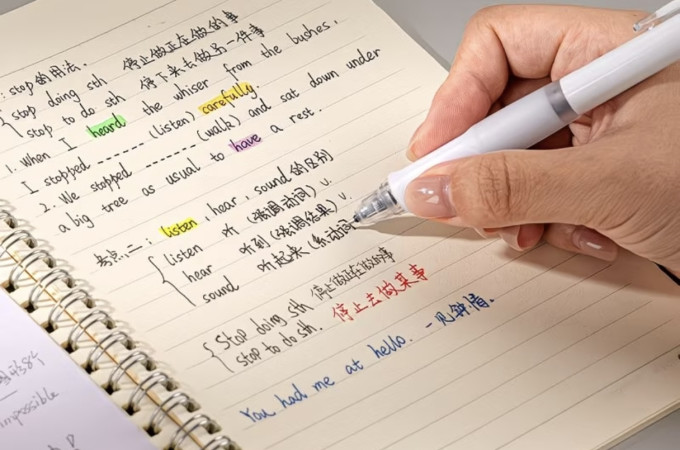 : stop的用法.
stop doing sth 停止做正在做的事
stop to do sth 停下来去做另一件事
1. When I heard the whiser from the bushes,
I stopped ------- (listen) carefully
2. We stopped ------- (walk) and sat down under
a big tree as usual to have a rest.
考点二: listen, hear, sound的区别
listen 听 (强调动词) v.
hear 听到 (强调结果) v.
sound 听起来 (系动词
stop doing sth 停止做正在做的事
stop to do sth. 停止去做某事
You had me at hello. 一见钟情.
impossible